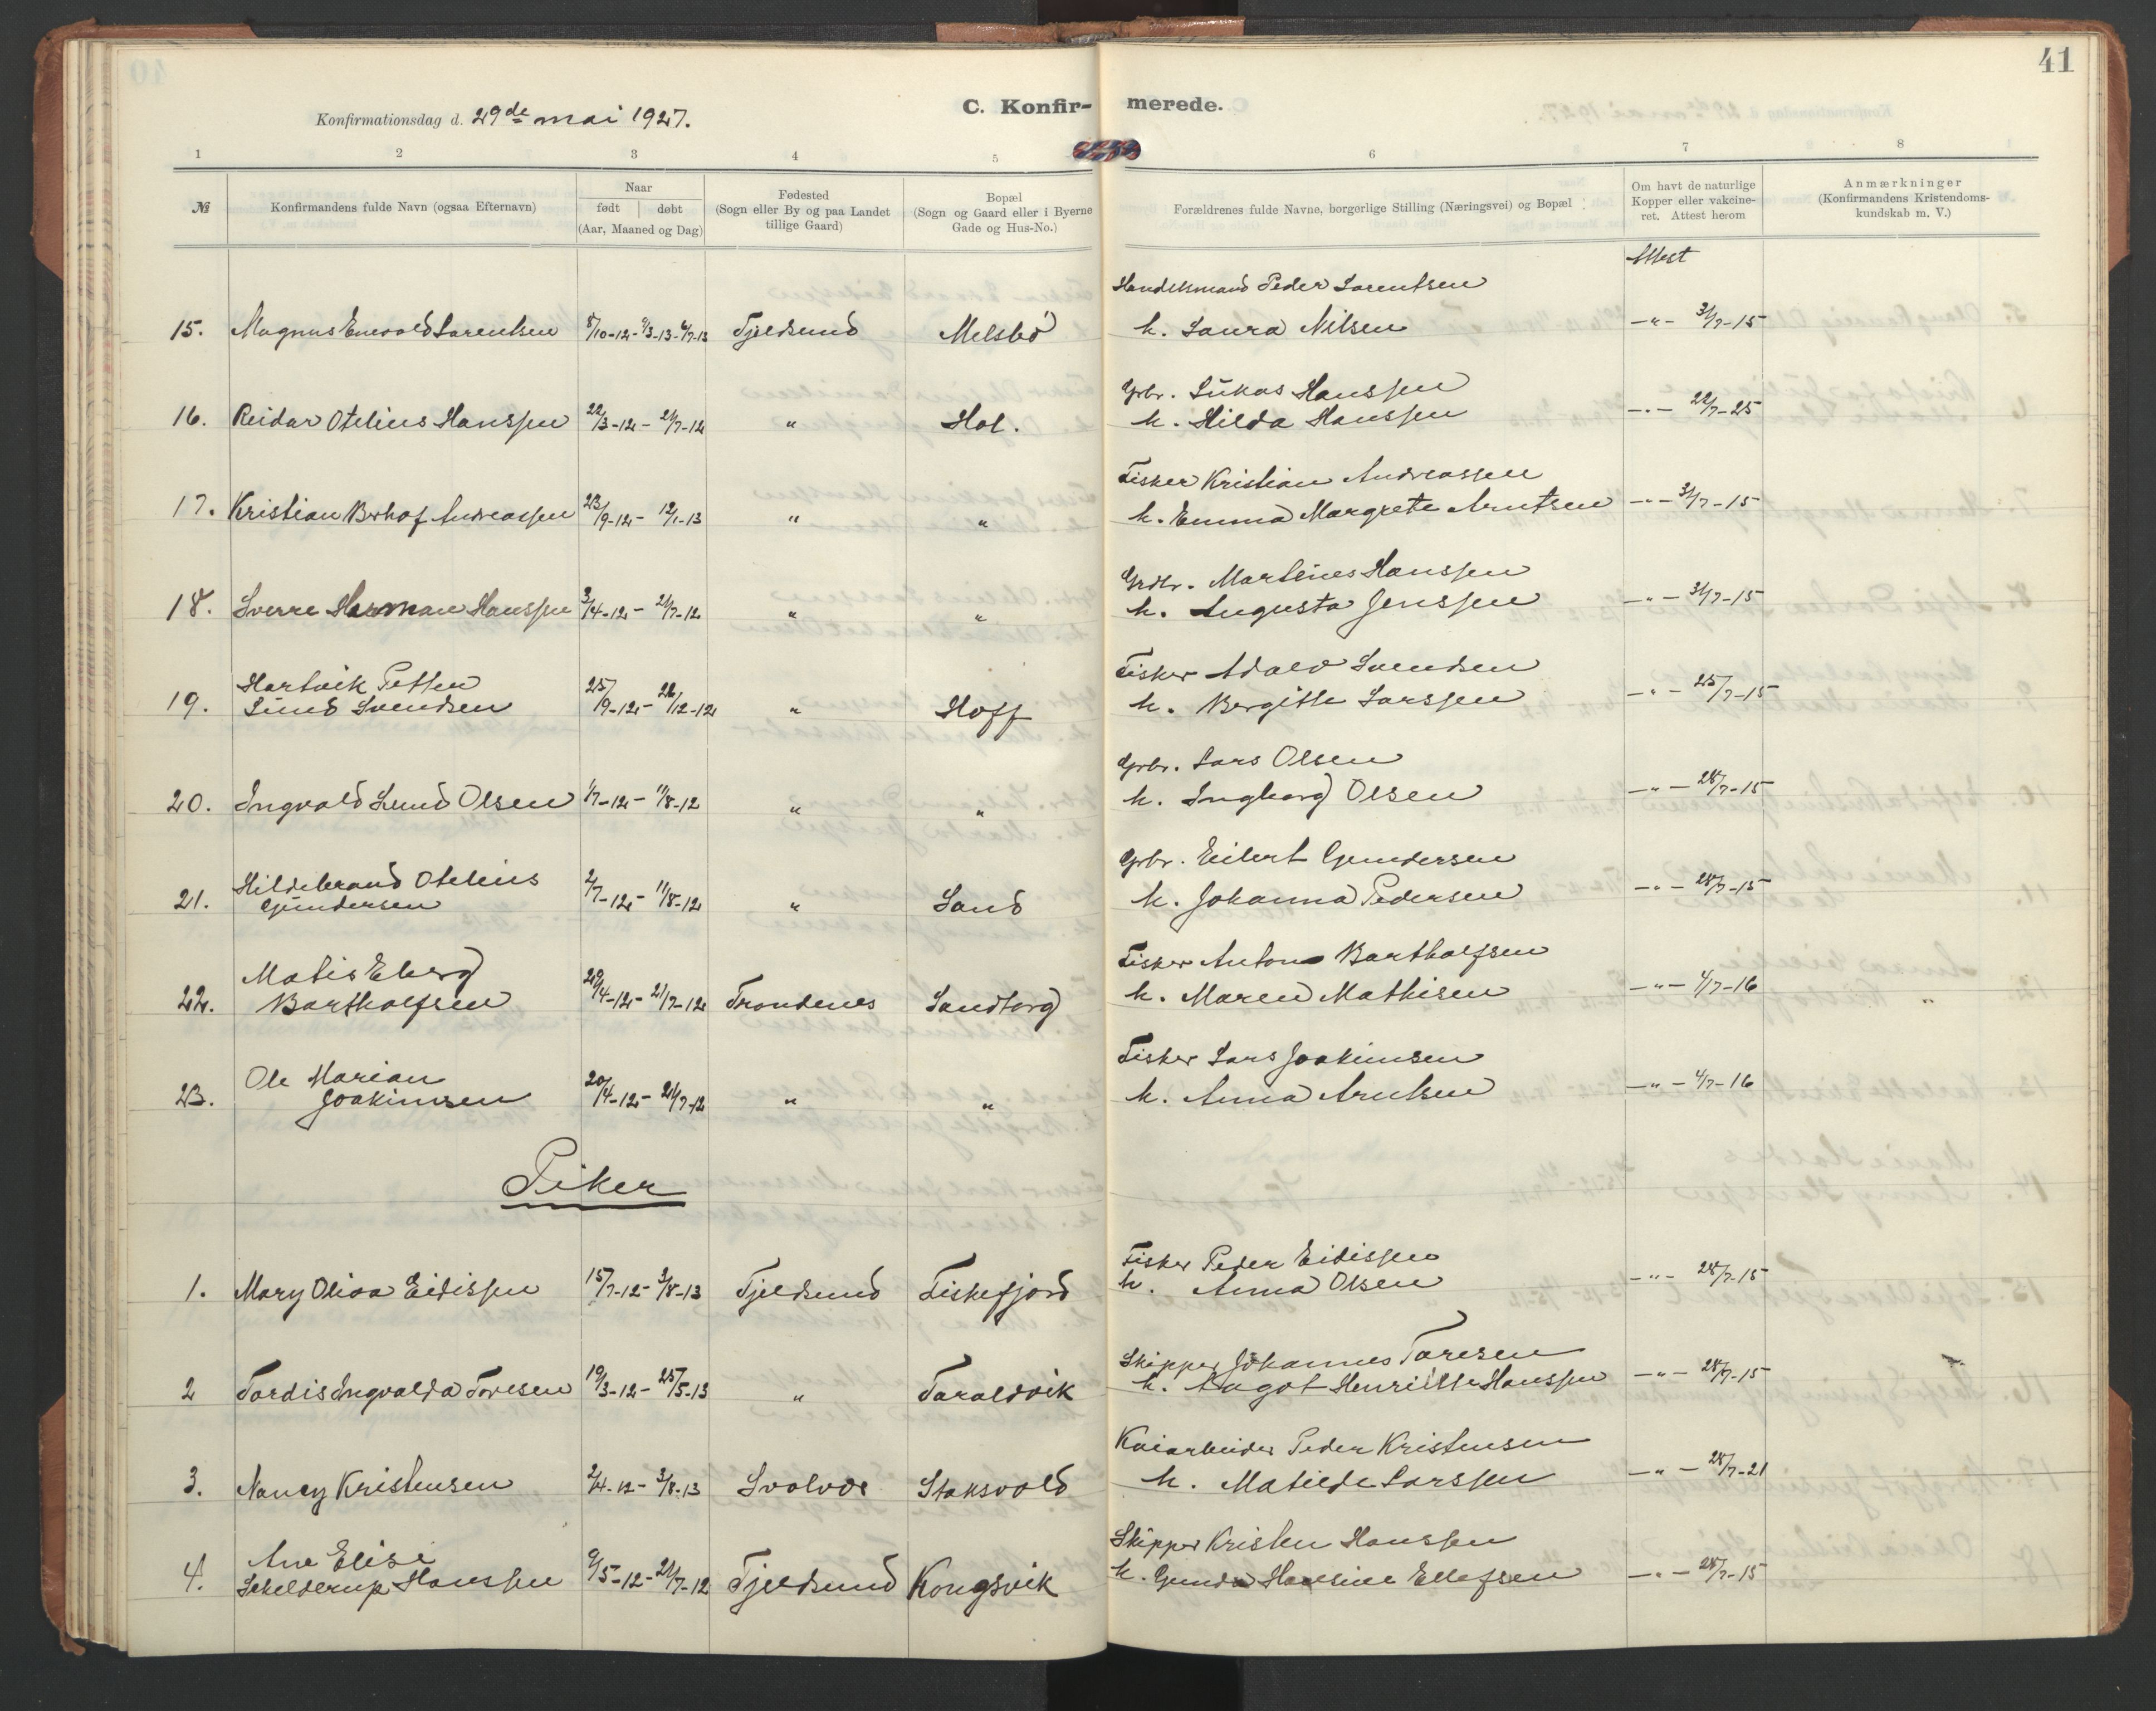 41
Konfirmationsdag d. 29de mai 1927.
C. Konfir- merede.
1 2 3 4 5 6 7 8
№
Konfirmandens fulde Navn (ogsaa Efternavn)
Naar
født døbt
(Aar, Maaned og Dag)
Fødested
(Sogn eller By og paa Landet
tillige Gaard)
Bopæl
(Sogn og Gaard eller i Byerne
Gade og Hus-No.)
Forældrenes fulde Navne, borgerlige Stilling (Næringsvei) og Bopæl
Om havt de naturlige
Kopper eller vakcine-
ret. Attest herom
Anmærkninger
(Konfirmandens Kristendoms-
kundskab m. V.)
Attest
Handelsmand Peder Larentsen
15. Magnus Enevold Larentsen 8/10-12 - 9/3-13 - 6/7-13 Tjeldsund Melsbö h. Laura Nilsen -"- 31/7-15
Grbr. Lukas Hanssen
16. Reidar Otelius Hanssen 22/3-12 - 21/7-12 " Hol. h. Hilda Hanssen -"- 22/7-25
Fisker Kristian Andreassen
17. Kristian Berhof Andreassen 23/9-12 - 12/1-13 " " h. Emma Margrete Arntsen -"- 31/7-15
Grdbr. Martines Hanssen
18. Sverre Herman Hanssen 3/4-12 - 21/7-12 " " h. Augusta Jenssen -"- 31/7-15
Hartvik Petter
Fisker Adolv Svendsen
19. Lund Svendsen 25/9-12 - 26/12-12 " Hoff h. Bergitte Larssen -"- 25/7-15
Grbr. Lars Olsen
20. Ingvald Lund Olsen 1/7-12 - 11/8-12 " " h. Ingborg Olsen -"- 28/7-15
Grbr. Eilert Gundersen
Hildebrand Otelius
21. Gundersen 2/7-12 - 11/8-12 " Sand h. Johanna Pedersen -"- 28/7-15
Fisker Anton Bartholfsen
Matis Eberg
22. Bartholfsen 29/4-12 - 21/7-12 Trondenes Sandtorg h. Maren Mathisen -"- 4/7-16
Fisker Lars Joakimsen
Ole Marian
23. Joakimsen 20/4-12 - 21/7-12 " " h. Anna Arntsen -"- 4/7-16
Piker
Fisker Peder Eidissen
1. Mary Oliva Eidissen 15/7-12 - 3/8-13 Tjeldsund Fiskefjord h. Anna Olsen -"- 28/7-15
Skipper Johannes Toresen
2 Tordis Ingvalda Toresen 19/3-12 - 25/5-13 " Taraldvik h. Aagot Henriette Hanssen -"- 28/7-15
Kaiarbeider Peder Kristensen
3. Nancy Kristensen 2/4-12 - 3/8-13 Svolvær Staksvold h. Matilde Larssen -"- 28/7-21
Ane Elise
Skipper Kristen Hanssen
4. Schelderup Hanssen 9/5-12 - 21/7-12 Tjeldsund Kongsvik h. Gunda Hansine Ellefsen -"- 28/7-15